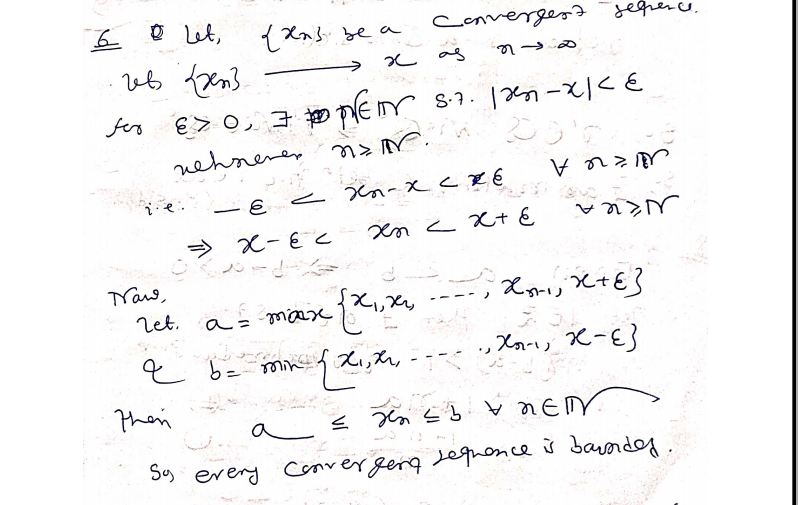 6 Let, {xn} be a convergent sequence.
let {xn} ⟶ x as n → ∞
for ε > 0, ∃ n ∈ ℕ s.t. |xn - x| < ε
whenever n ≥ ℕ.
i.e. - ε < xn - x < ε ∀ n ≥ ℕ
⇒ x - ε < xn < x + ε ∀ n ≥ N
Now,
let. a = max {x1, x2, ----, xn-1, x+ε}
& b = min {x1, x2, ----, xn-1, x-ε}
Then a ≤ xn ≤ b ∀ n ∈ ℕ
So, every convergent sequence is bounded.